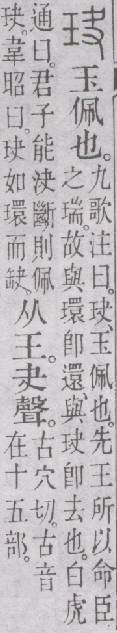 玦 玉佩也。
九歌注曰。玦、玉佩也。先王所以命臣
之瑞。故與環卽還、與玦卽去也。白虎
通曰。君子能決斷則佩
玦。韋昭曰。玦如環而缺。
从王。夬聲。
古穴切。古音
在十五部。